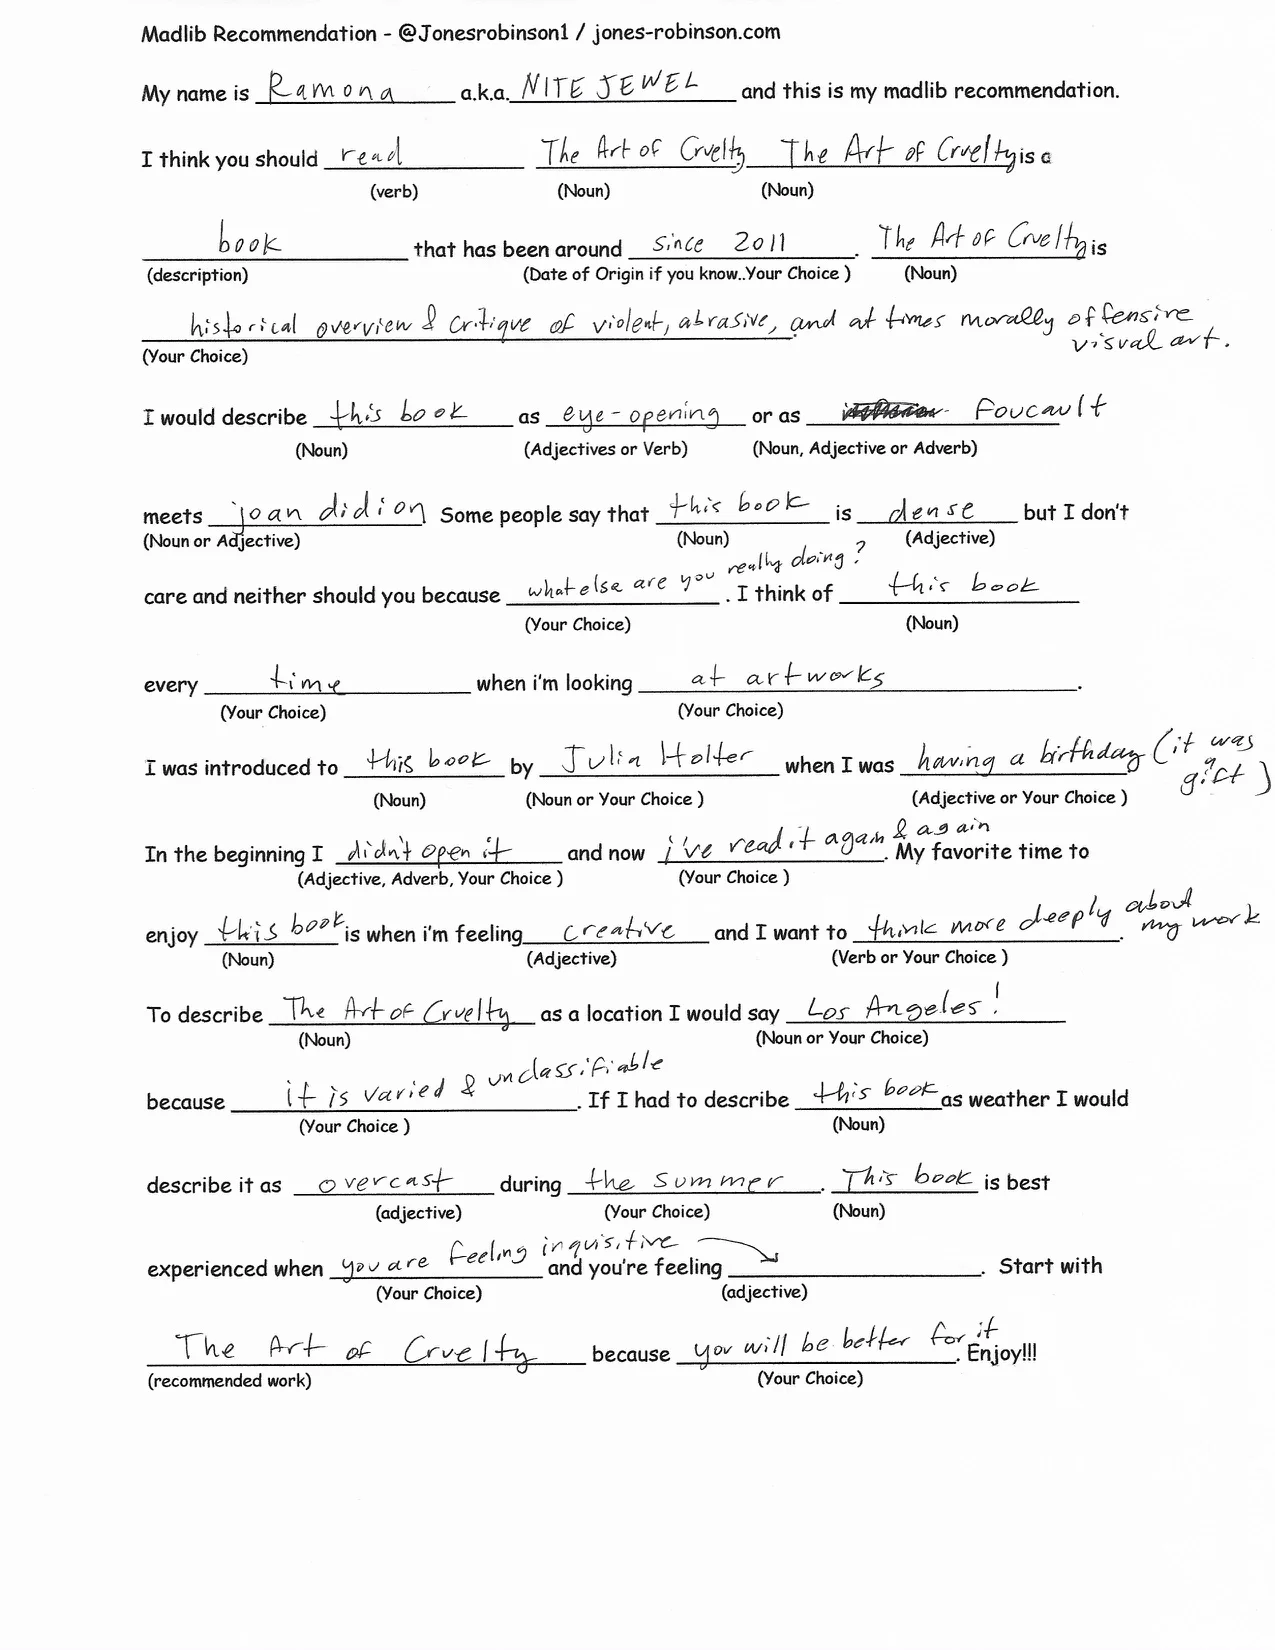 Madlib Recommendation - @Jonesrobinson1 / jones-robinson.com
My name is Ramona a.k.a. NITE JEWEL and this is my madlib recommendation.
I think you should read The Art of Cruelty The Art of Cruelty is a
(verb) (Noun) (Noun)
book that has been around since 2011. The Art of Cruelty is
(description) (Date of Origin if you know..Your Choice ) (Noun)
historical overview & critique of violent, abrasive, and at times morally offensive
visual art.
(Your Choice)
I would describe this book as eye-opening or as Foucault
(Noun) (Adjectives or Verb) (Noun, Adjective or Adverb)
meets joan didion Some people say that this book is dense but I don't
(Noun or Adjective) (Noun) (Adjective)
care and neither should you because what else are you really doing? . I think of this book
(Your Choice) (Noun)
every time when i'm looking at artworks.
(Your Choice) (Your Choice)
I was introduced to this book by Julia Holter when I was having a birthday (it was
a gift)
(Noun) (Noun or Your Choice ) (Adjective or Your Choice )
In the beginning I didn't open it and now i've read it again & again. My favorite time to
(Adjective, Adverb, Your Choice ) (Your Choice )
enjoy this book is when i'm feeling creative and I want to think more deeply about my work.
(Noun) (Adjective) (Verb or Your Choice )
To describe The Art of Cruelty as a location I would say Los Angeles!
(Noun) (Noun or Your Choice)
because it is varied & unclassifiable. If I had to describe this book as weather I would
(Your Choice ) (Noun)
describe it as overcast during the summer. This book is best
(adjective) (Your Choice) (Noun)
experienced when you are feeling inquisitive and you're feeling . Start with
(Your Choice) (adjective)
The Art of Cruelty because you will be better for it. Enjoy!!!
(recommended work) (Your Choice)